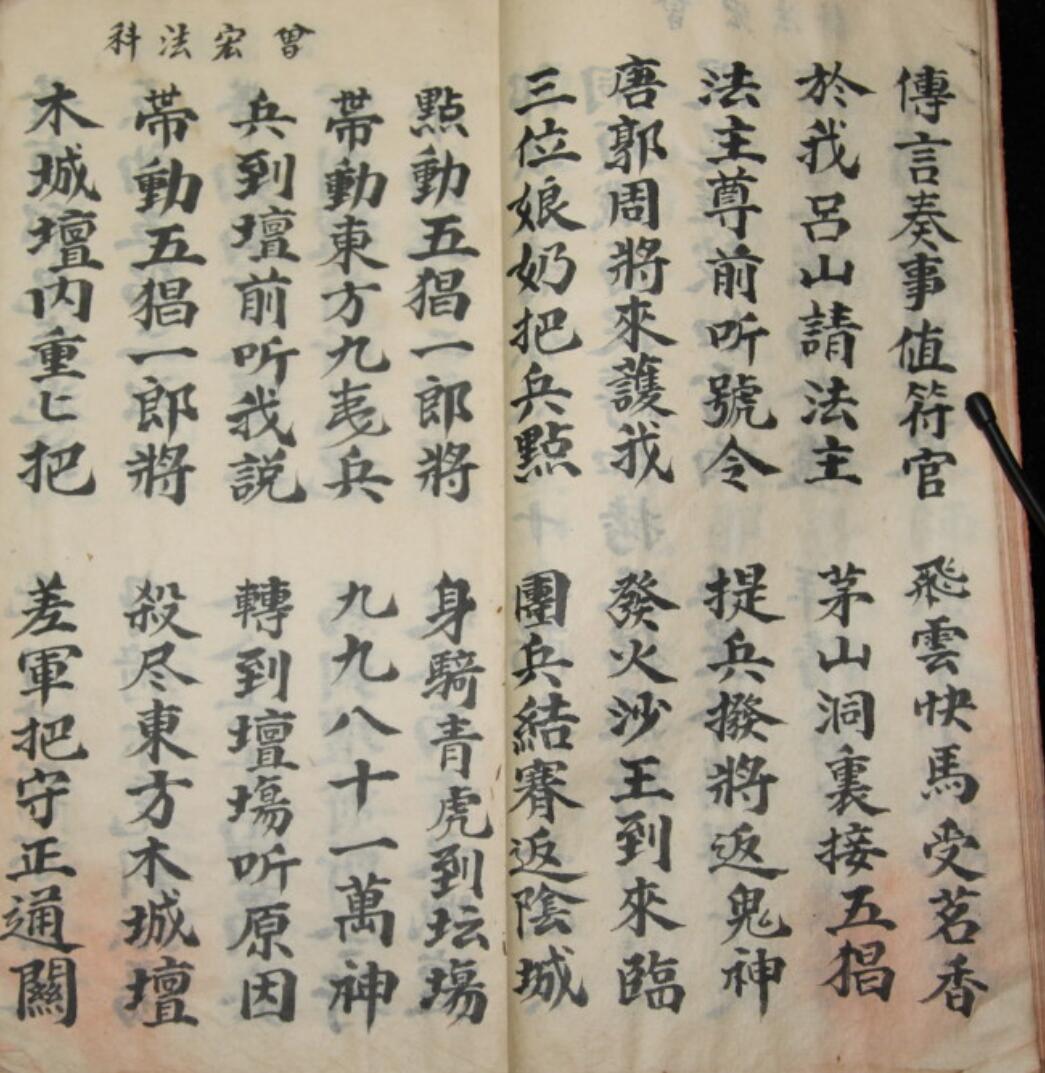 傳言奏事值符官 飛雲快馬受茗香
於我呂山請法主 茅山洞裏接五猖
法主尊前听號令 提兵撥將返鬼神
唐郭周將來護我 發火沙王到來臨
三位娘奶把兵點 團兵結賽返陰城
曾宏法科
點動五猖一郎將 身騎青虎到坛塲
帯動東方九夷兵 九九八十一萬神
兵到壇前听我説 轉到壇塲听原因
帯動五猖一郎將 殺尽東方木城壇
木城壇内重匕把 差軍把守正通關